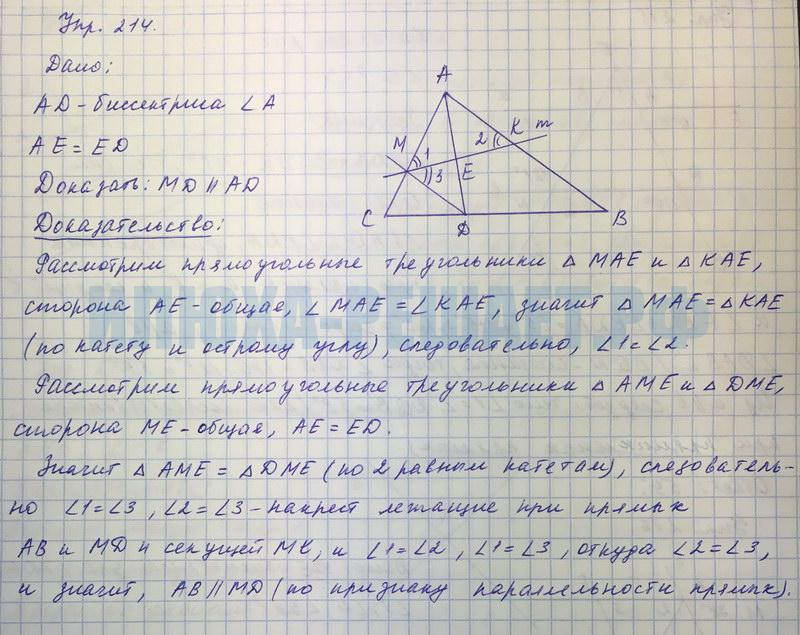 Упр. 214.
Дано:
AD - биссектриса ∠A
AE = ED
Доказать: MD || AD
Доказательство:
A
M
1
2
K
m
3
E
C
D
B
Рассмотрим прямоугольные треугольники △ MAE и △ KAE,
сторона AE - общая, ∠ MAE = ∠ KAE, значит △ MAE = △ KAE
ИЛЮХА-РЕШАЕТ.РФ
(по катету и острому углу), следовательно, ∠1 = ∠2.
Рассмотрим прямоугольные треугольники △ AME и △ DME,
сторона ME - общая, AE = ED.
Значит △ AME = △ DME (по 2 равным катетам), следователь-
но ∠1 = ∠3, ∠2 = ∠3 - накрест лежащие при прямых
AB и MD и секущей MK, и ∠1 = ∠2, ∠1 = ∠3, откуда ∠2 = ∠3,
и значит, AB || MD (по признаку параллельности прямых).